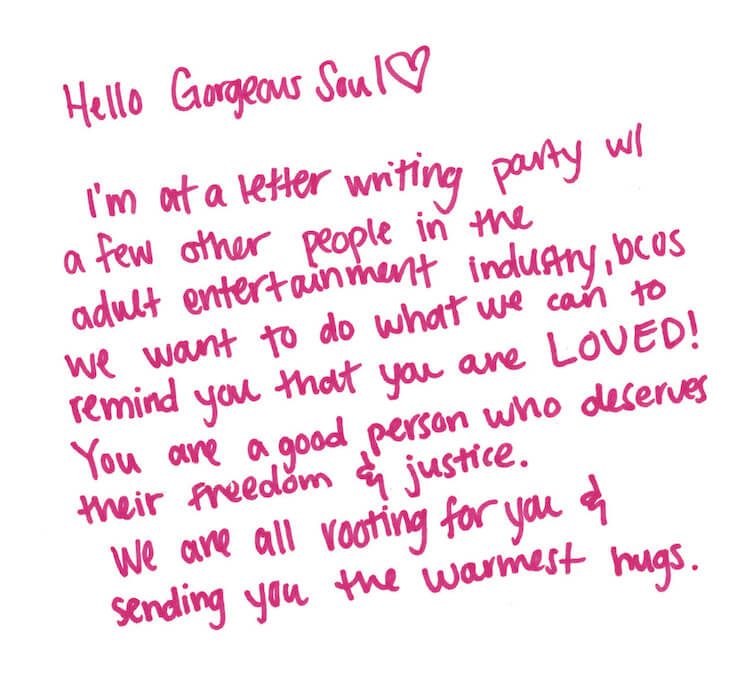 Hello Gorgeous Soul♡
I'm at a letter writing party w/
a few other people in the
adult entertainment industry, bcos
we want to do what we can to
remind you that you are LOVED!
You are a good person who deserves
their freedom & justice.
We are all rooting for you &
sending you the warmest hugs.